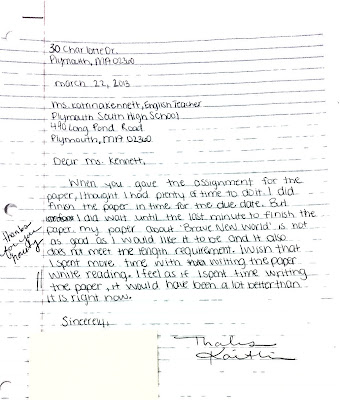 30 Charlotte Dr.
Plymouth, MA 02360
March 22, 2013
Ms. Katrina Kennett, English Teacher
Plymouth South High School
490 Long Pond Road
Plymouth, MA 02360
Dear Ms. Kennett,
When you gave the assignment for the
paper, I thought I had plenty of time to do it. I did
finish the paper in time for the due date. But
I did wait until the last minute to finish the
paper. My paper about "Brave New World" is not
as good as I would like it to be and it also
does not meet the length requirement. I wish that
I spent more time with writing the paper
while reading. I feel as if I spent time writing
the paper, it would have been a lot better than
it is right now.
Thanks
for you
Sincerely,
Thanks